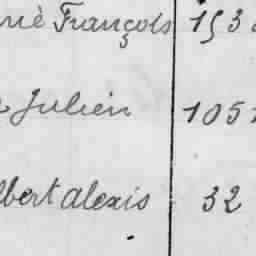 François 153
Julien 105
lbert alexis 32